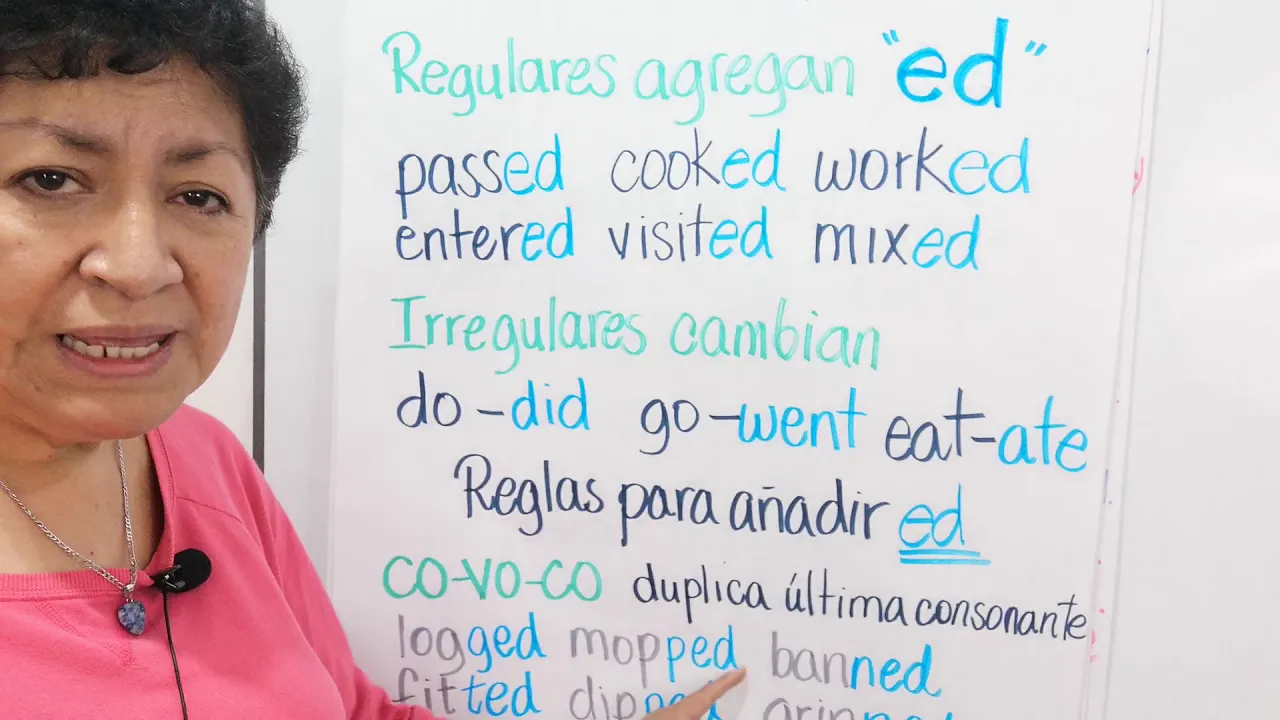 Regulares agregan "ed"
passed cooked worked
entered visited mixed
Irregulares cambian
do-did go-went eat-ate
Reglas para añadir ed
CO-VO-CO duplica última consonante
logged mopped banned
fitted dipped